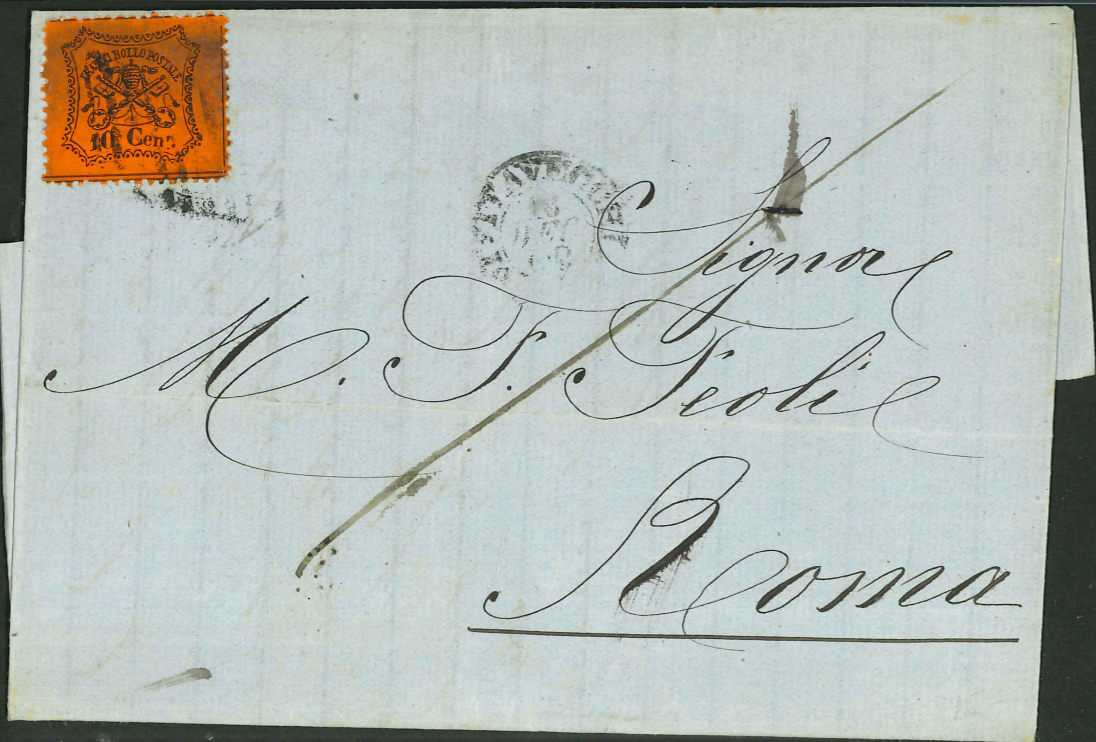 FRANCO BOLLO POSTALE
10 Cent.
CIVITAVECCHIA
Signor
M. F. Feoli
Roma